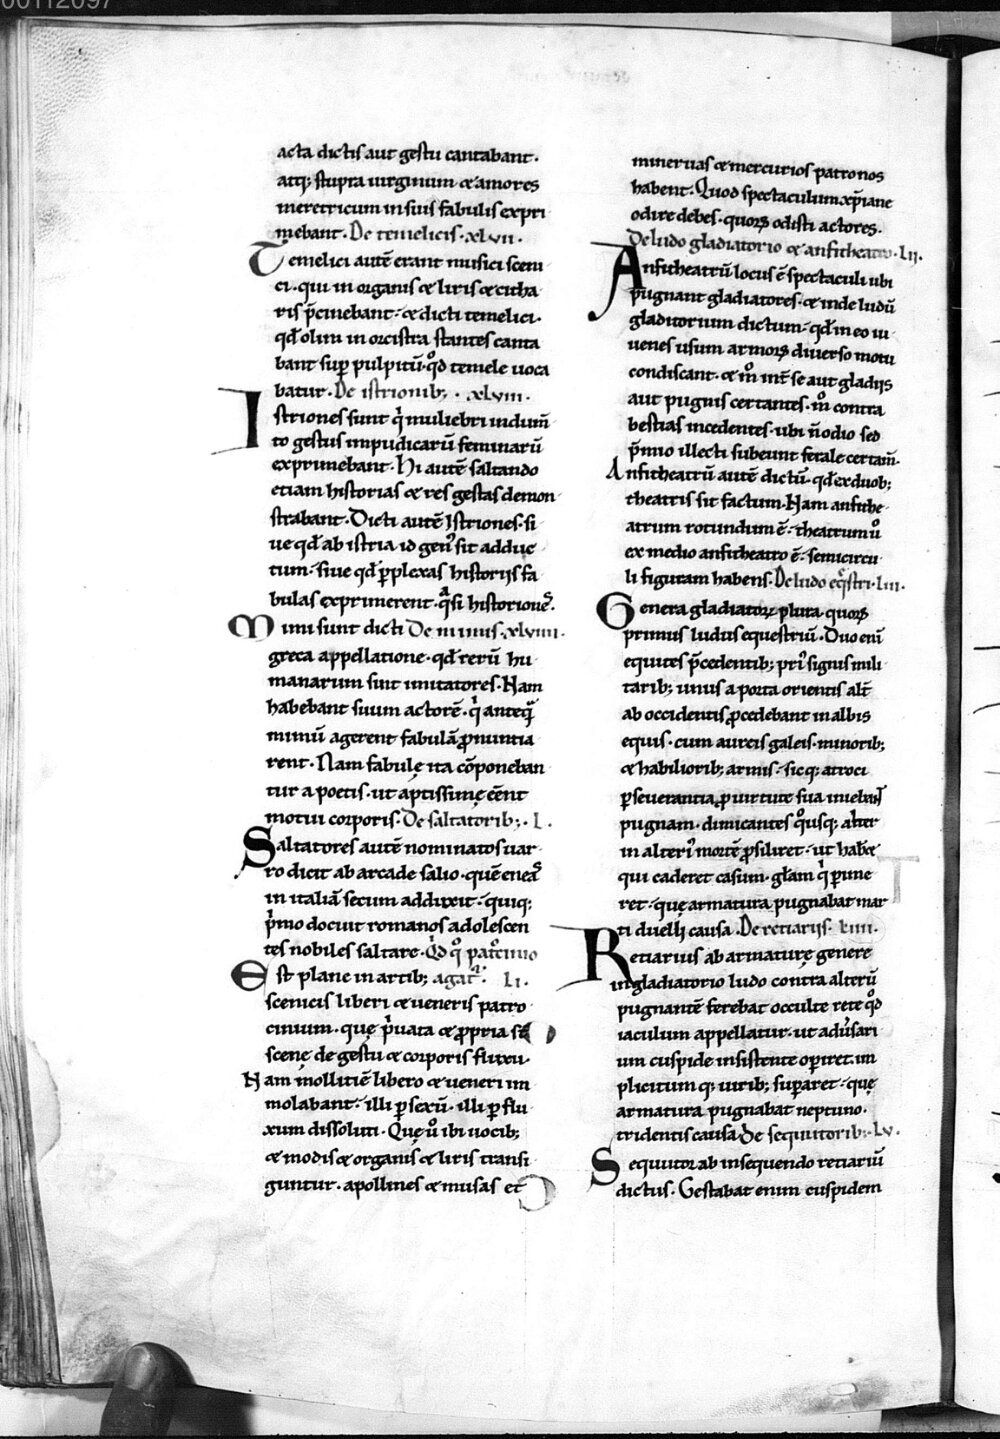 00112097
acta dictis aut gestu cantabant.
atq; stupra uirginum & amores
meretricum in suis fabulis expri
mebant. De temelicis. xlvii.
Temelici autē erant musici sceni
ci. qui in organis & liris & citha
ris p̄cinebant. & dicti temelici.
qđ olim in orcistra stantes canta
bant sup̄ pulpitū. qđ temele uoca
batur. De istrionib;. xlviii.
Istriones sunt qͥ muliebri indum̄
to gestus impudicarū feminarū
exprimebant. Hi autē saltando
etiam historias & res gestas demon
strabant. Dicti autē Istriones. si
ue qđ ab istria id gen᷒ sit adduc
tum. siue qđ p̱plexas historijs fa
bulas exprimerent. qͣsi historiones.
Mimi sunt dicti De mimis. xlviiii.
greca appellatione. qđ rerū hu
manarum sint imitatores. Nam
habebant suum actorē. qͥ anteqͣ̄
mimū agerent fabulā ꝓnuntia
rent. Nam fabulę ita cōponeban
tur a poetis. ut aptissimę eēnt
motui corporis. De saltatorib;. L.
Saltatores autē nominatos uar
ro dicit ab arcade salio. quē eneas
in italiā secum adduxit. quiq;
p̍mo docuit romanos adolescen
tes nobiles saltare. Qđ qͦ patͦcinio
Est plane in artib; agat᷑. Li.
scenicis liberi & ueneris patro
cinium. quę p̍uata & ꝓpria st̄
scenę de gestu & corporis fluxu.
Nam mollitiē libero & ueneri im
molabant. illi p̱ sexū. illi p̱ flu
xum dissoluti. Quę ů ibi uocib;
& modis & organis & liris transi
guntur. apollines & musas et
mineruas & mercurios patronos
habent. Quod spectaculum xp̄iane
odire debes. quorꝫ odisti actores.
De ludo gladiatorio & anfitheatro. Lii.
Anfitheatrū locus ē spectaculi ubi
pugnant gladiatores. & inde ludū
gladitorium dictum. qđ in eo iu
uenes usum armorꝫ diuerso motu
condiscant. & m̊ int̄ se aut gladijs
aut pugnis certantes. m̊ contra
bestias incedentes. ubi n̄ odio sed
p̄mio illecti subeunt ferale certam̄.
Anfitheatrū autē dictū. qđ ex duob;
theatris sit factum. Nam anfithe
atrum rotundum ē. theatrum ů
ex medio anfitheatro ē. semicircu
li figuram habens. De ludo eq̄stri. Liii.
Genera gladiatorꝫ plura. quorꝫ
primus ludus equestriū. Duo eni
equites p̄cedentib; pri᷒ signis mili
tarib; unus a porta orientis alt̄
ab occidentis ꝓcedebant in albis
equis. cum aureis galeis. minorib;
& habiliorib; armis. sicq; atroci
p̱seuerantia ꝓ uirtute sua iniebant
pugnam. dimicantes qͦusq; alter
in alteri᷒ mortē ꝓsiliret. ut haberet
qui caderet casum. glam̄ qͥ perime
ret. quę armatura pugnabat mar
ti duelli causa. De retiarijs. Liiii.
Retiarius ab armaturę genere
in gladiatorio ludo contra alterū
pugnantē ferebat occulte rete qđ
iaculum appellatur. ut adu̓sari
um cuspide insistente operiret. im
plicitumq; uirib; sup̱aret. quę
armatura pugnabat neptuno.
tridentis causa. De sequutorib;. Lv.
Sequutor ab insequendo retiariū
dictus. Gestabat enim cuspidem